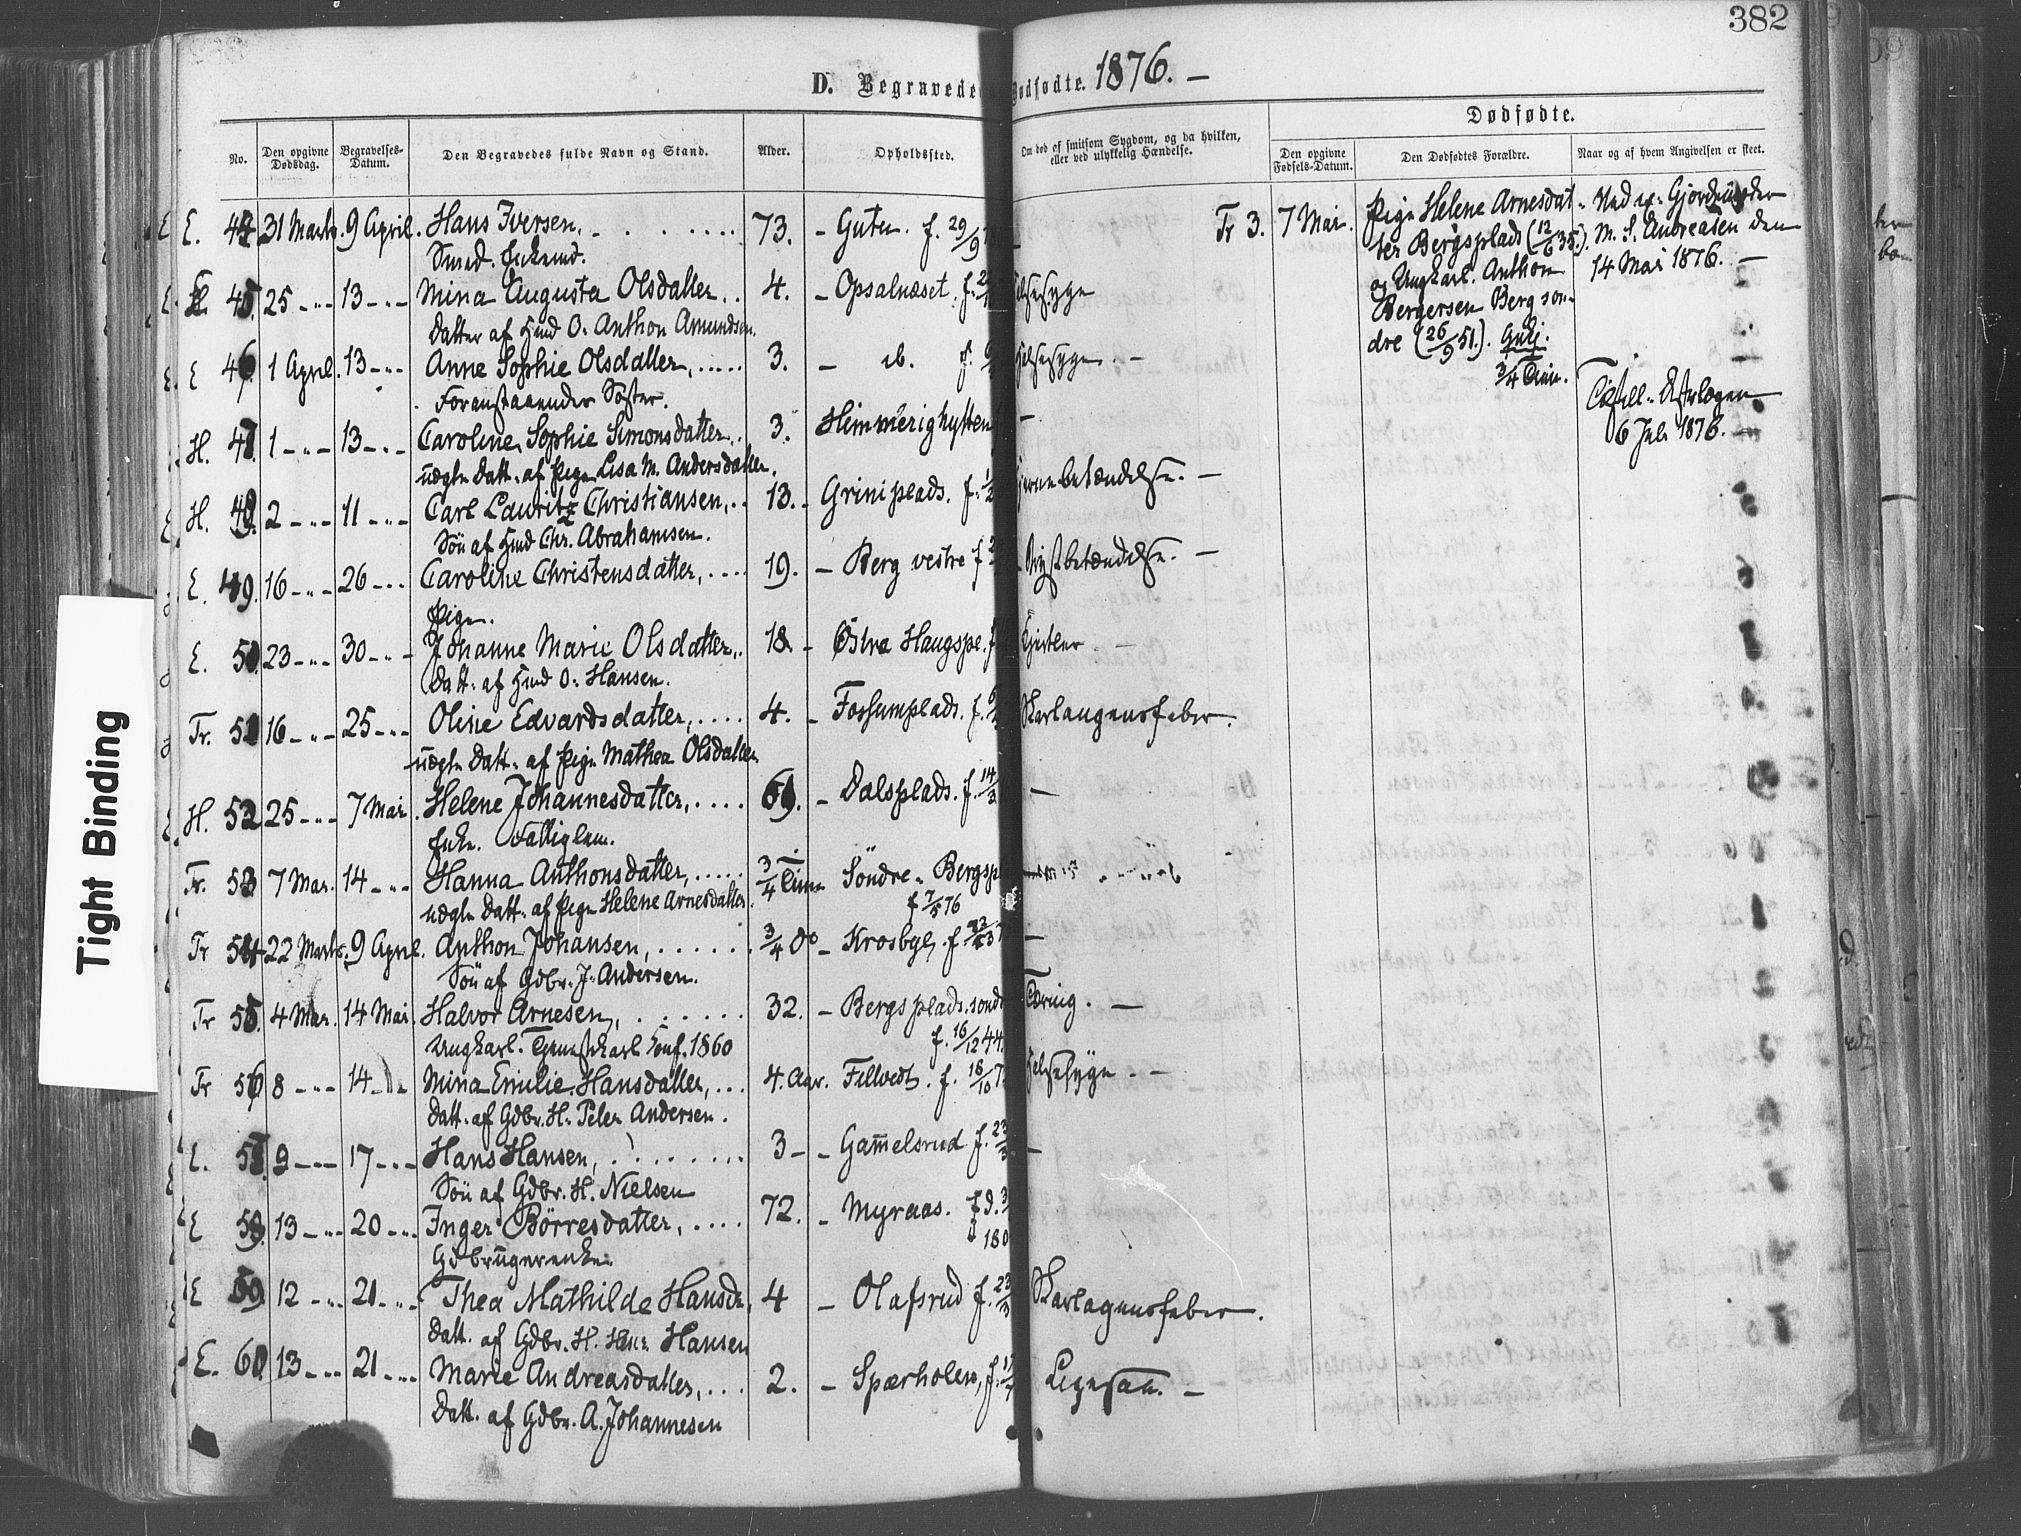 382
D. Begravede Dødfødte. 1876. –
Dødfødte.
No. Den opgivne Dødsdag. Begravelses-Datum. Den Begravedes fulde Navn og Stand. Alder. Opholdssted. Om død af smitsom Sygdom, og da hvilken, eller ved ulykkelig Hændelse. Den opgivne Fødsels-Datum. Den Dødfødtes Forældre. Naar og af hvem Angivelsen er skeet.
E. 44. 31 Marts. 9 April. Hans Iversen, 73. – Guten. f. 29/9
Smed. Enkemd.
E. 45. 25 – " – 13 – " – Mina Augusta Olsdatter.. 4. – Opsalnæset. f. Halsesyge
Datter af Hmd O. Anthon Amundsen.
E 46. 1 April. 13 – " – Anne Sophie Olsdatter, 3. – ib. f. Halsesyge. –
Foranstaaendes Søster.
H. 47. 1 – " – 13 – " – Caroline Sophie Simonsdatter.. 3. Himmerighytten –
uægte Datt. af Pige Lisa M. Andersdatter.
H. 48. 2 – " – 11 – " – Carl Lauritz Christiansen,.. 13. – Griniplads. f. Hjernebetændelse. –
Søn af Hmd Chr. Abrahamsen.
E. 49. 16 – " – 26 – " – Caroline Christensdatter, 19. – Berg vestre f Brystbetændelse. –
Pige.
E. 50. 23 – " – 30 – " – Johanne Marie Olsdatter,. 18. – Østre Haugspl. f. Kjertler –
Datt. af Hmd O. Hansen.
Tr. 51 16 – " – 25 – " – Oline Edvardsdatter, 4. – Fossumplads. f. Skarlagensfeber.
uægte Datt. af Pige Mathea Olsdatter
H. 52 25 – " – 7 Mai. Helene Johannesdatter, 61. – Dalsplads. f. 14/3 –
Enke. Fattiglem.
Tr. 53 7 Mai. 14 – " – Hanna Anthonsdatter, 3/4 Time Søndre Bergspl
uægte Datt. af Pige Helene Arnesdatter. f 7/5 76
Tr 54 22 Marts. 9 April. Anthon Johansen, 3/4 Do – Krosby, f –
Søn af Gdbr. J. Andersen.
Tr 55. 4 Mai. 14 Mai. Halvor Arnesen, 32. – Bergsplads. sondre Tæring. –
Ungkarl. Tjenestkarl Conf. 1860 f. 16/12 44.
Tr 56 8 – " – 14 – " – Mina Emilie Hansdatter, 4. Aar. Fillvedt. f. 18/10 7 Halsesyge. –
Datt. af Gdbr. H. Peter Andersen.
E. 57 9 – " – 17 – " – Hans Hansen, 3 – – Gammelsrud f. 23/3 –
Søn af Gdbr. H. Nielsen
E 58. 13 – " – 20 – " – Inger Børresdatter, 72. – Myraas. f d. 3
Gdbrugerenke. 180
E 59. 12 – " – 21 – " – Thea Mathilde Hansd., 4 – Olafsrud f. 23/3 Skarlagensfeber.
Datt. af Gdbr. H. Hansen
E. 60 13 – " – 21 – " – Marie Andreasdatter, 2. – Spærholen, f. 17/7 Ligesaa. –
Datt. af Gdbr. A. Johannesen
Tr 3. 7 Mai. Pige Helene Arnesdat-
ter Bergsplads (12/6 35.)
og Ungkarl Anthon
Bergersen Berg søn-
dre (26/9 51). Gulj.
3/4 Time.
Ved Gjordmoder
M. S. Andreasen den
14 Mai 1876. –
6 Juli 1876. –
Tight Binding